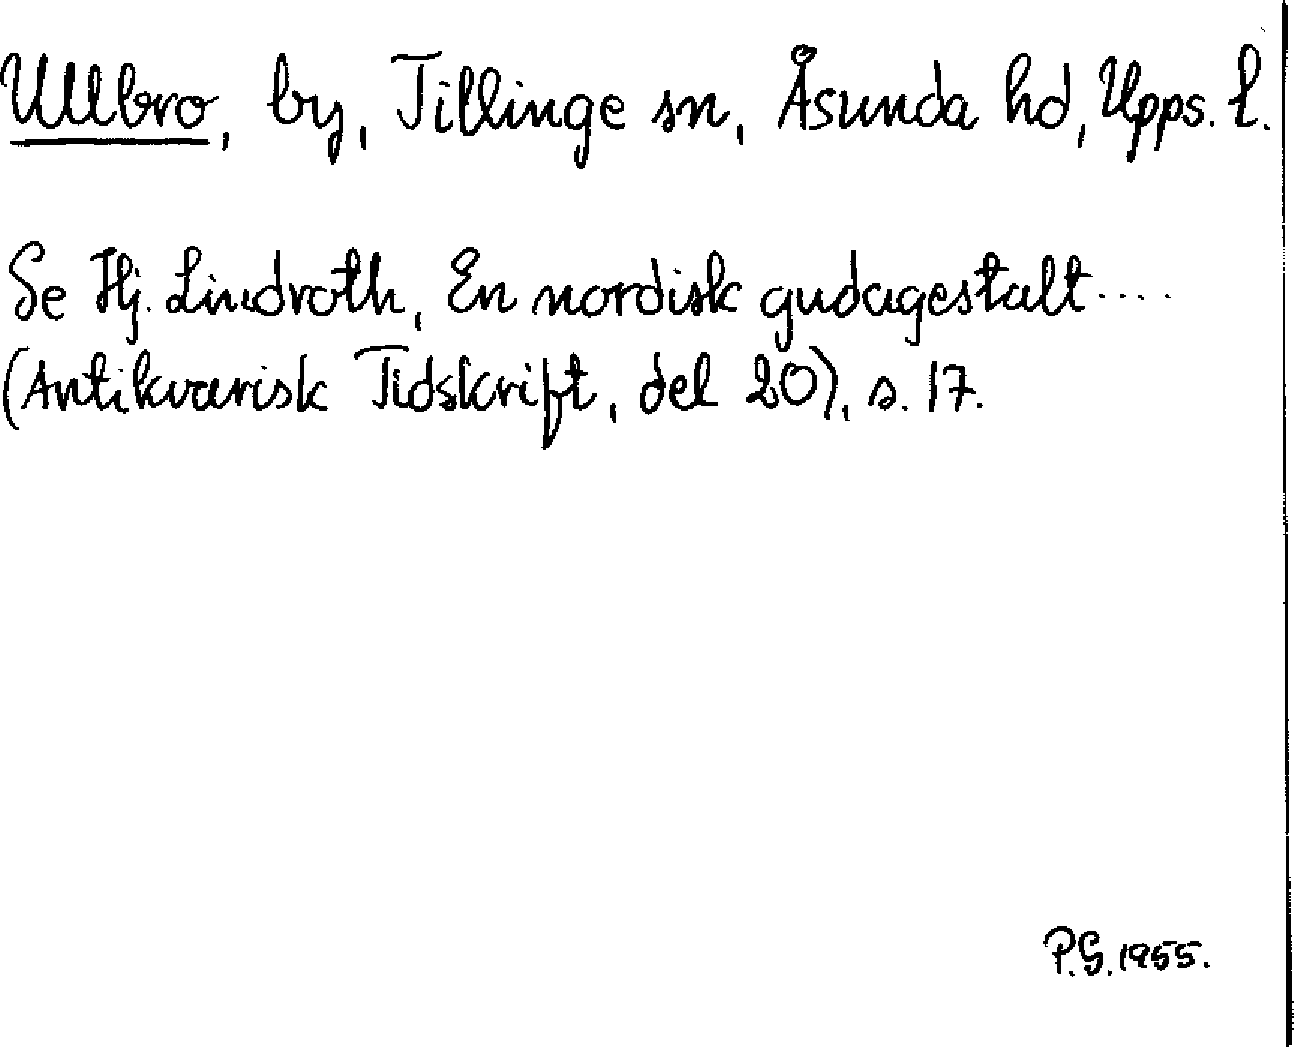 Ullbro, by, Tillinge sn, Åsunda hd, Upps. l.
Se Hj. Lindroth, En nordisk gudagestalt ....
(Antikvarisk Tidskrift, del 20), s. 17.
P.G. 1955.